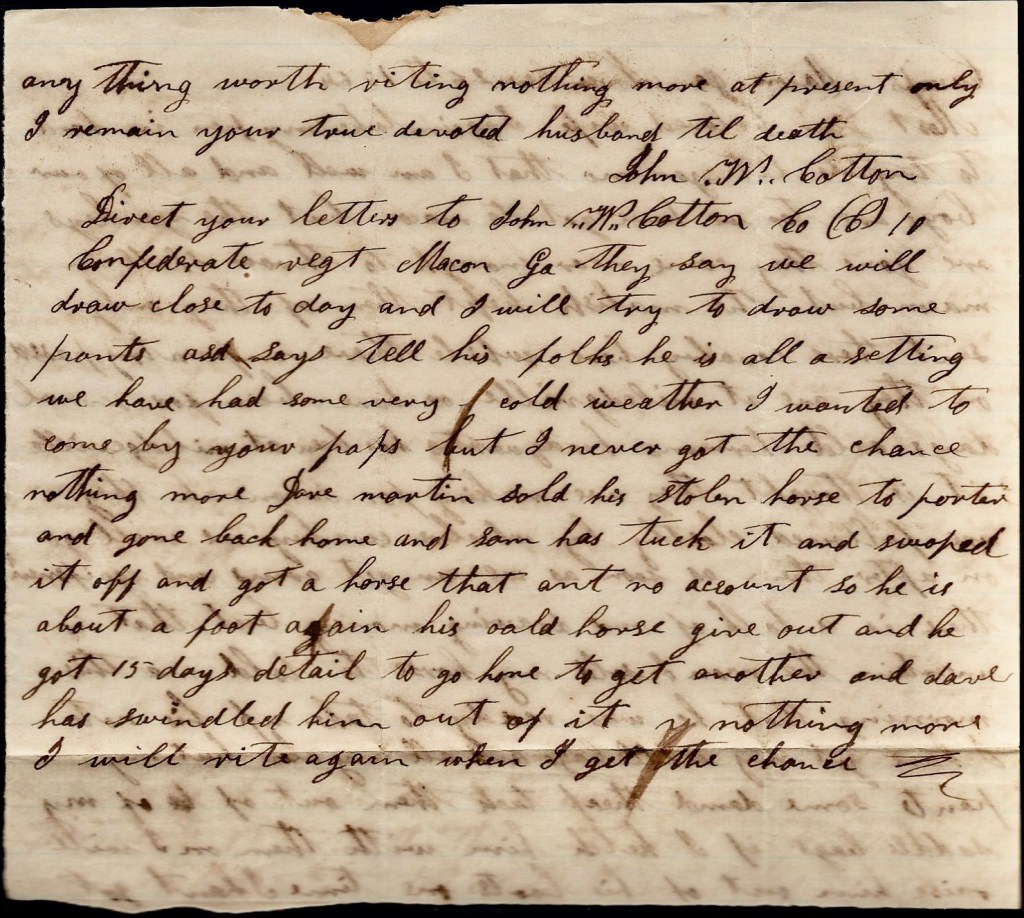 any thing worth riting nothing more at present only
I remain your true devoted husband til death
John .W.. Cotton
Direct your letters to John .W. Cotton Co (C) 10
Confederate regt Macon Ga they say we will
draw close to day and I will try to draw some
pants asa says tell his folks he is all a setting
we have had some very cold weather I wanted to
come by your paps but I never got the chance
nothing more Dave martin sold his stolen horse to porter
and gone back home and sam has tuck it and swoped
it off and got a horse that ant no account so he is
about a foot again his oald horse give out and he
got 15 days detail to go home to get another and dave
has swindled him out of it nothing more
I will rite again when I get the chance